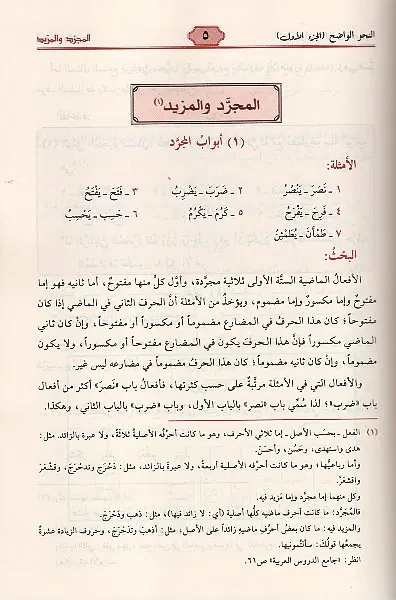 النحو الواضح (الجزء الأول)
٥
المجرّد والمزيد
المجرَّد والمزيد (١)
(١) أبوابُ المجرَّد
الأمثلة:
١ - نَصَرَ - يَنْصُرُ ٢ - ضَرَبَ - يَضْرِبُ ٣ - فَتَحَ - يَفْتَحُ
٤ - فَرِحَ - يَفْرَحُ ٥ - كَرُمَ - يَكْرُمُ ٦ - حَسِبَ - يَحْسِبُ
٧ - طَمْأَنَ - يُطَمْئِنُ
البحث:
الأفعال الماضية الستَّة الأولى ثلاثية مجرَّدة، وأوَّل كلٍّ منها مفتوحٌ، أما ثانيه فهو إما
مفتوحٌ وإما مكسورٌ وإما مضموم، ويؤخذُ من الأمثلة أنَّ الحرف الثاني في الماضي إذا كان
مفتوحاً؛ كان هذا الحرفُ في المضارع مضموماً أو مكسوراً أو مفتوحاً، وإنْ كان ثاني
الماضي مكسوراً فإنَّ هذا الحرفَ يكون في المضارع مفتوحاً أو مكسوراً، ولا يكون
مضموماً، وإنْ كان ثانيه مضموماً؛ كان هذا الحرفُ مضموماً في مضارعه ليس غير.
والأفعال التي في الأمثلة مرتَّبة على حسب كثرتها، فأفعالُ باب «نَصَرَ» أكثر من أفعال
باب «ضرب»؛ لذا سُمِّي باب "نصر" بالباب الأول، وباب «ضرب» بالباب الثاني، وهكذا.
(١) الفعل ـ بحسَب الأصل ـ إما ثلاثي الأحرف، وهو ما كانت أحرفُه الأصلية ثلاثةً، ولا عبرة بالزائد، مثل:
هدى واستهدى، وحَسُن، وأحسَنَ.
وأما رباعيُّها؛ وهو ما كانت أحرفُه الأصلية أربعةً، ولا عبرة بالزائد، مثل: دَحْرَج وتدحْرَج، وقشْعَرَ
واقشعرَّ.
وكل منهما إما مجرَّد وإما مَزيد فيه.
فالمُجَرَّد: ما كانت أحرف ماضيه كلُّها أصلية (أي: لا زائد فيها)، مثل: ذهَبَ ودَحْرَج.
والمزيد فيه: ما كان بعضُ أحرفِ ماضيهِ زائداً على الأصل، مثل: أذهَبَ وتدَحْرَج، وحروف الزيادة عشرةٌ
يجمعُها قولُكَ: سألتُمونيها.
انظر: «جامع الدروس العربية» ص٦٦.